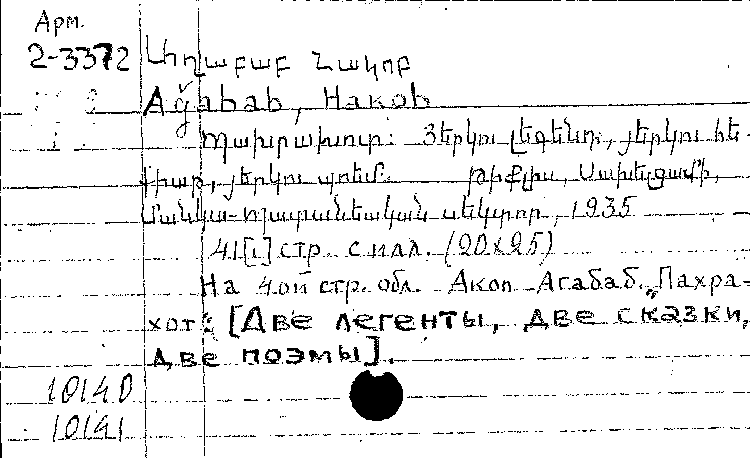 Арм.
2-3372 Աղաբաբ Հակոբ
Ağabab, Hakob
Պախրախոտ: Յերկու լեգենդ, յերկու հե-
քիաթ, յերկու պոեմ. Թիֆլիս, Սախելգամի,
Մանկա-պատանեկական սեկտոր, 1935
41[1] стр. с илл. (20x25)
На 4ой стр. обл. Акоп Агабаб. „Пахра-
хот: [Две легенты, две сказки,
две поэмы].
10140
10141